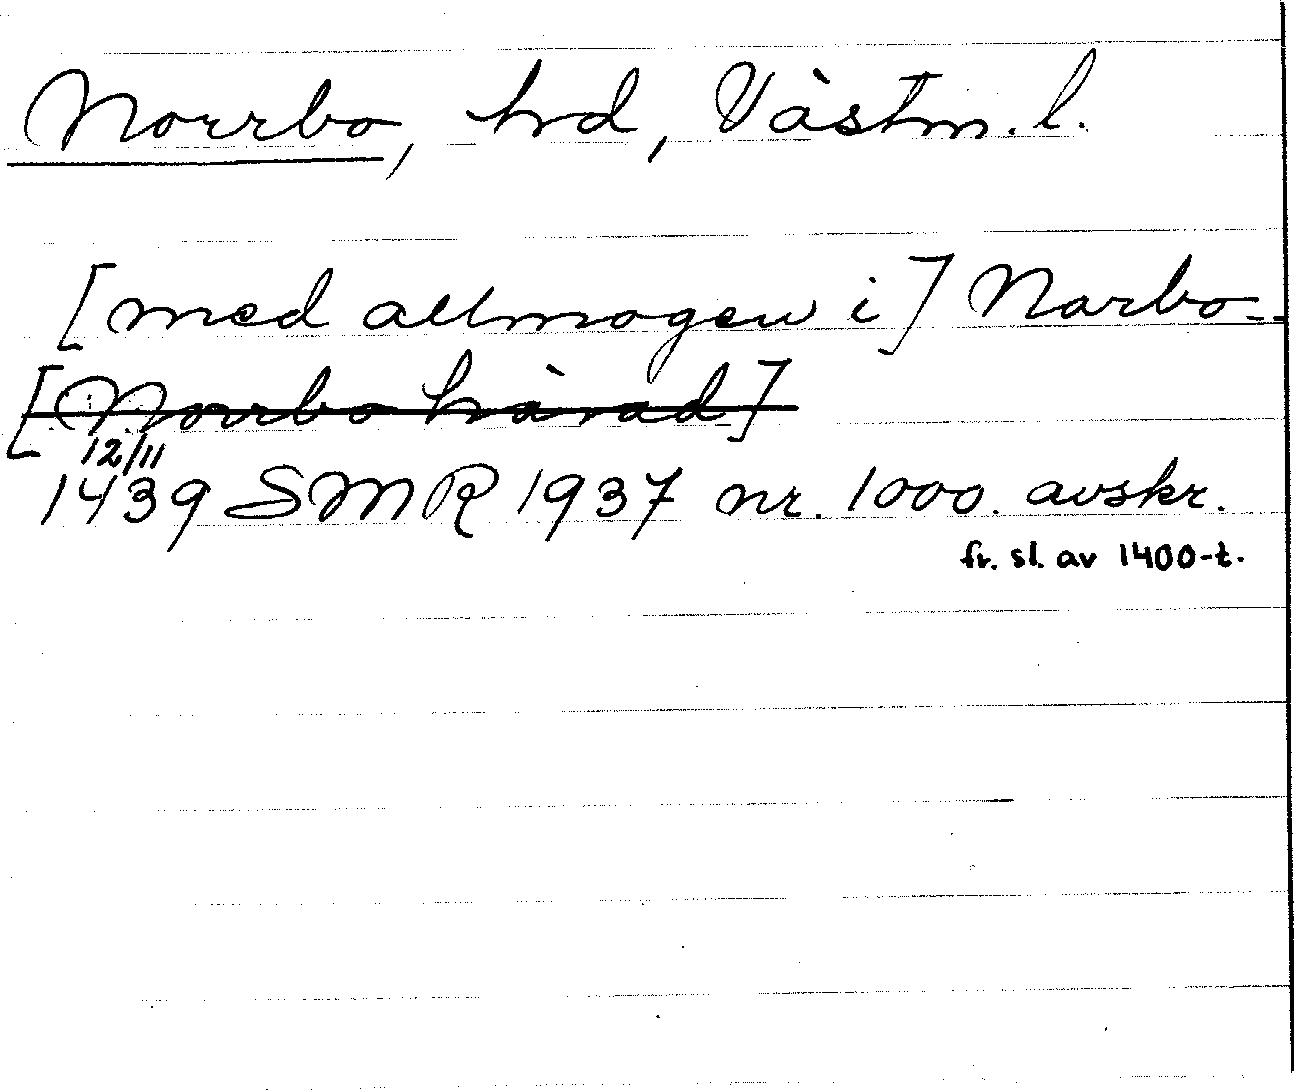 Norrbo, hrd, Västm. l.
[med allmogen i] Narbo-
[Norrbo härad]
12/11
1439 SMR 1937 nr. 1000. avskr.
fr. sl. av 1400-t.